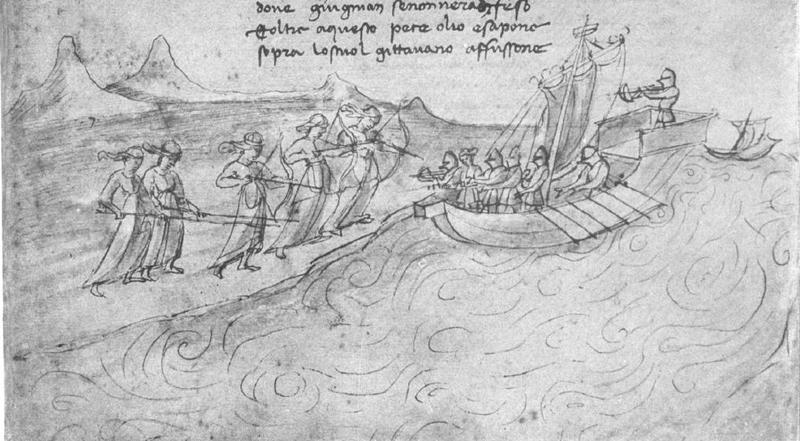 doue giugnian senonnera difeso
Eoltre aquesto pece olio esapone
sopra lostuol gittauano affussone